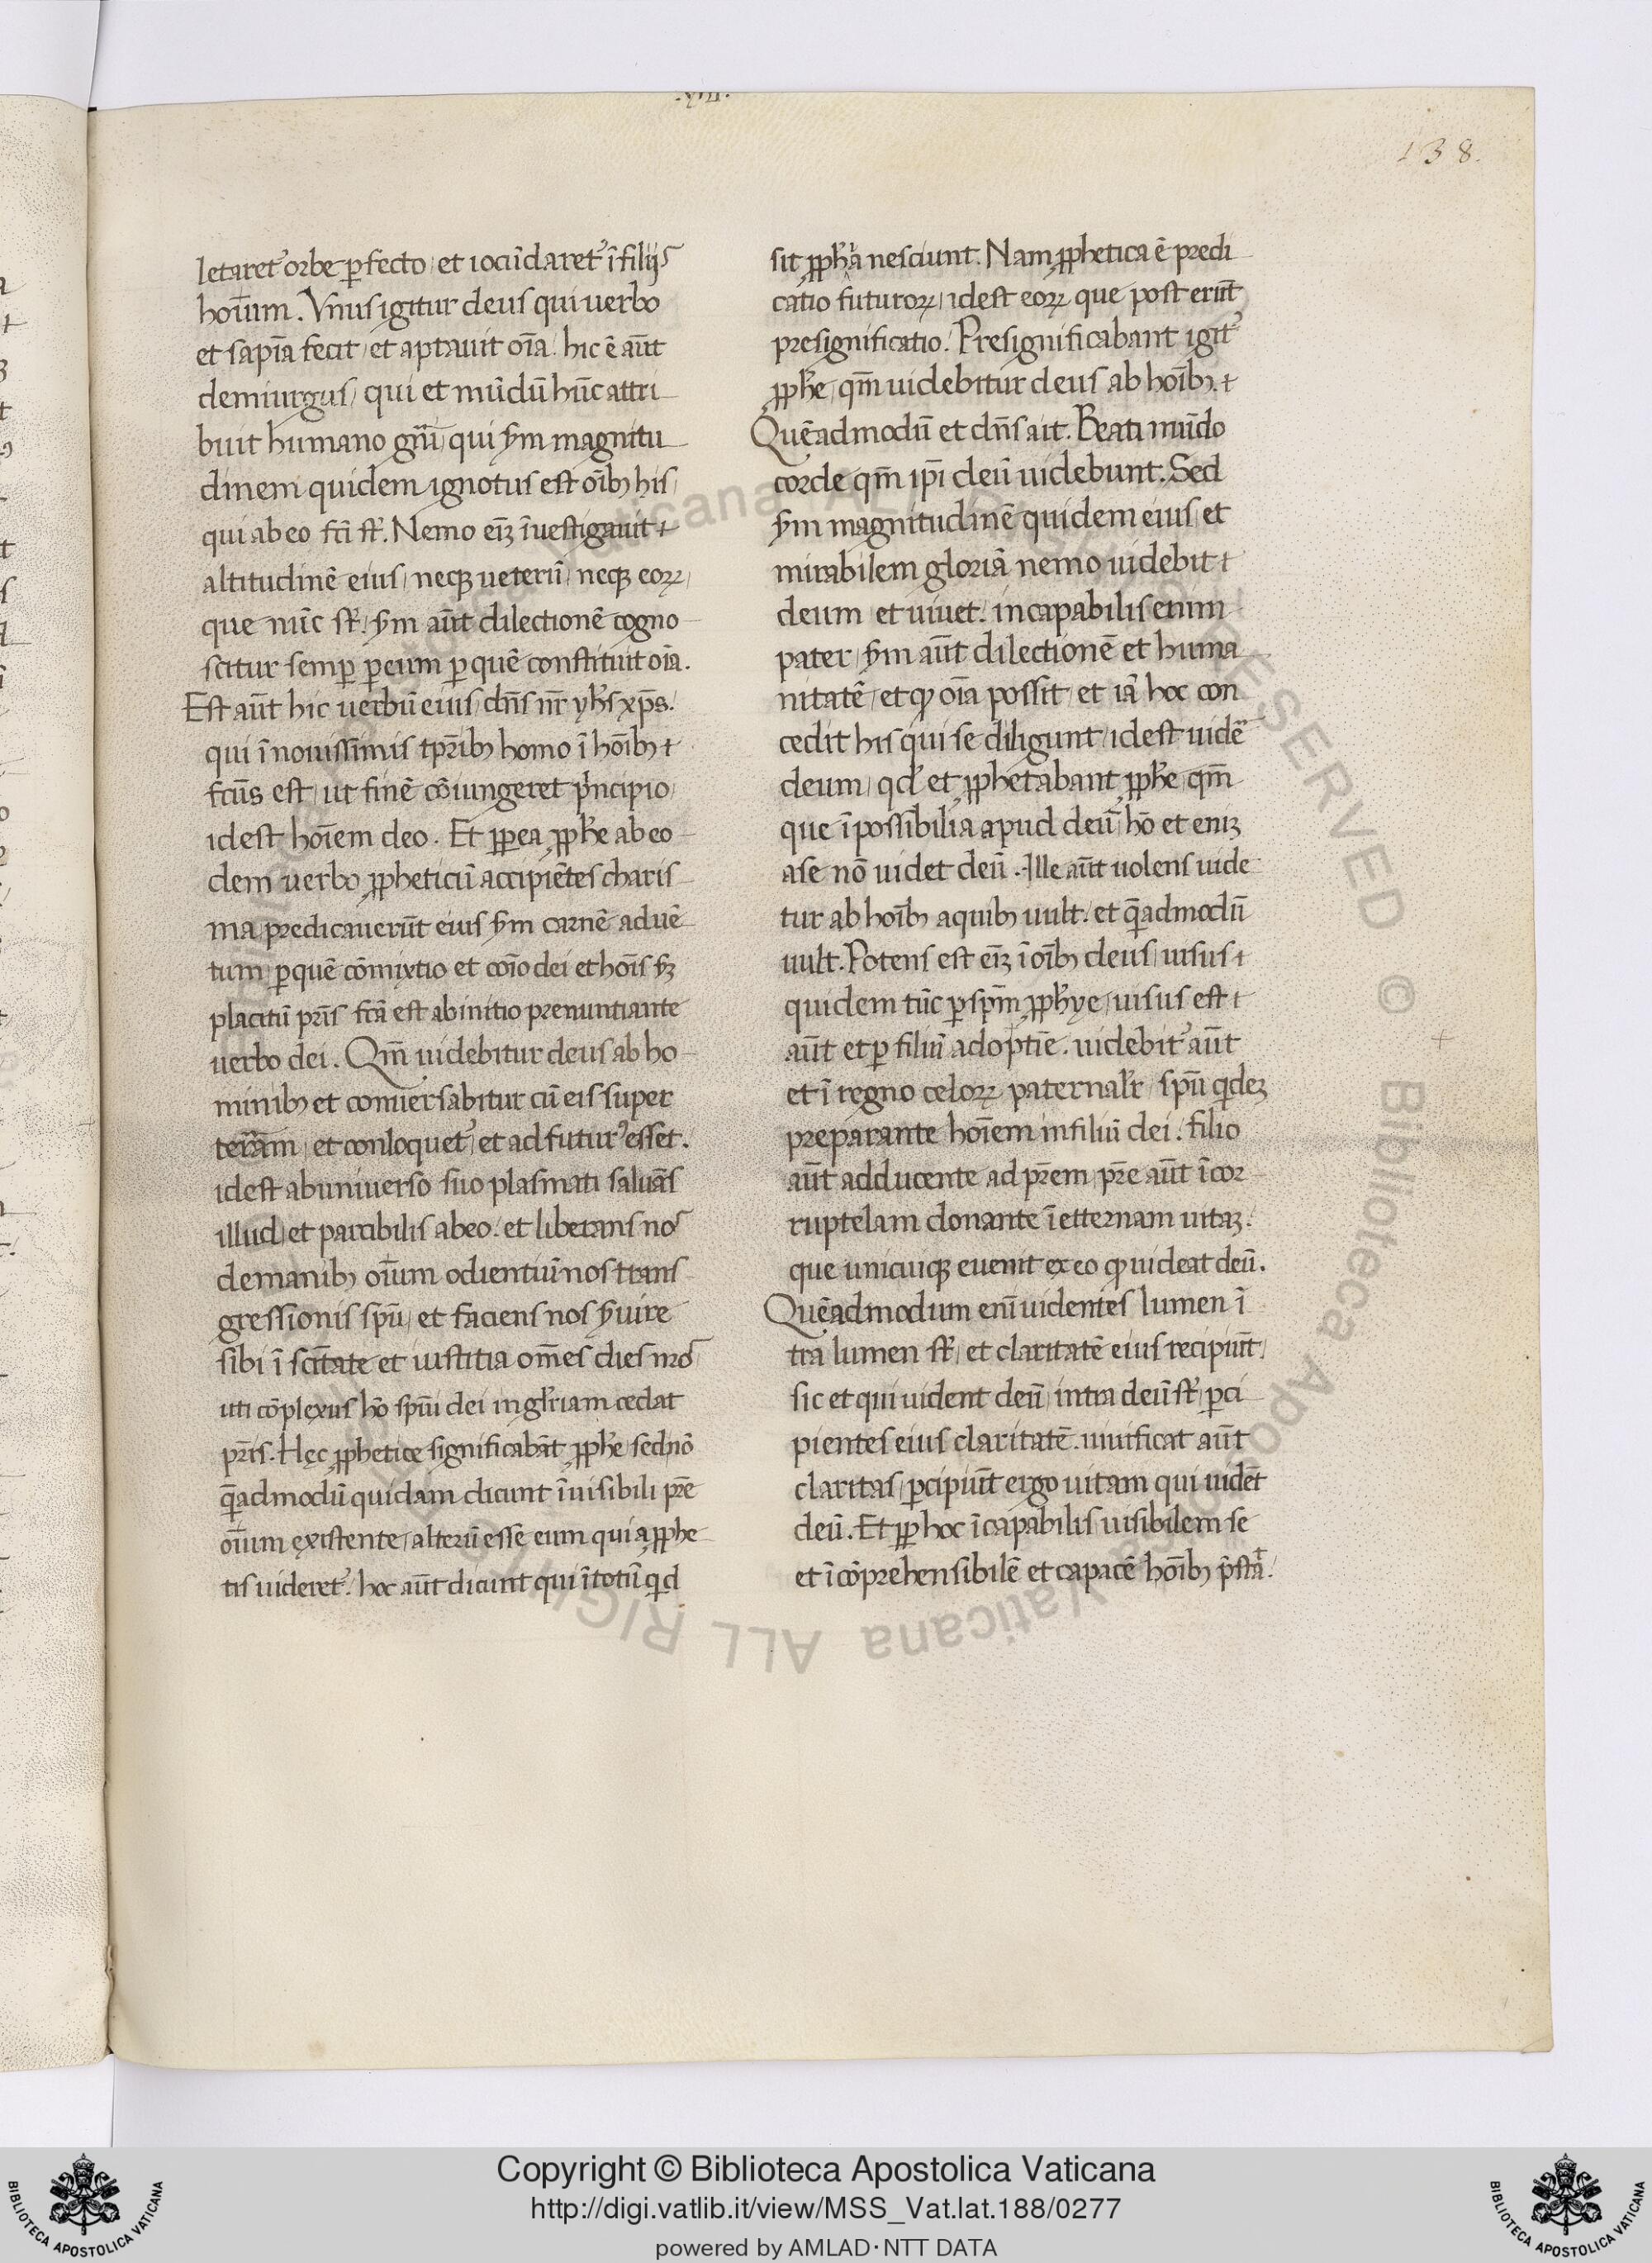 .XIII.
138.
letaret᷒ orbe ꝑfecto / et iocūdaret᷒ ī filijs
hoīum. Vnus igitur deus qui uerbo
et sapīa fecit / et aptauit oīa. hic ē aūt
demiurgus / qui et mūdū hūc attri
buit humano gn̄i / qui ẜm magnitu
dinem quidem ignotus est oībꝫ his /
qui ab eo fc̄i st̄. Nemo eīꝫ īuestigauit
altitudinē eius / neqꝫ ueterū / neqꝫ eoꝝ /
que nūc st̄. / ẜm aūt dilectionē cogno
scitur semꝑ ꝑ eum ꝑ quē constituit oīa.
Est aūt hic uerbū eius / dn̄s nr̄ yħs xp̄s.
qui ī nouissimis tp̄ribꝫ homo ī hoībꝫ
fc̄us est / ut finē cōiungeret p̓ncipio /
idest hoīem deo. Et ꝓpea ꝓpħe ab eo
dem uerbo ꝓpheticū accipiētes charis
ma predicauerūt eius ẜm carnē aduē
tum / ꝑ quē cōmixtio et cōio dei et hoīs ẜꝫ
placitū pr̄is fc̄a est ab initio prenuntiante
uerbo dei. Qm̄ uidebitur deus ab ho
minibꝫ et conuersabitur cū eis super
terram / et conloquet᷒ / et adfutur᷒ esset.
idest ab uniuerso suo plasmati saluās
illud / et parcibilis ab eo. et liberans nos
de manibꝫ oīum odientiū nos trans
gressionis spū / et faciens nos ẜuire
sibi ī scītate et iustitia om̄es dies nr̄os /
uti cōplexus hō spm̄ dei in glr̄iam cedat
pr̄is. Hęc ꝓphetice significabāt ꝓpħe / sed nō
qꝫadmodū quidam dicunt īuisibili pr̄e
oīum existente / alterū esse eum qui a ꝓphe
tis uideret᷒. / hoc aūt dicunt qui ī totū qd
sit ꝓpħia nesciunt. Nam ꝓphetica ē predi
catio futuroꝝ / idest eoꝝ que post erūt
presignificatio. Presignificabant igit᷒
ꝓpħe / qm̄ uidebitur deus ab hoībꝫ.
Quēadmodū et dn̄s ait. Beati mūdo
corde qm̄ ip̄i deū uidebunt. Sed
ẜm magnitudinē quidem eius / et
mirabilem gloriā nemo uidebit
deum / et uiuet. incapabilis enim
pater / ẜm aūt dilectionē et huma
nitatē / et qꝫ oīa possit / et iā hoc con
cedit his qui se diligunt / idest uidē
deum / qd̓ et ꝓphetabant ꝓpħe / qm̄
que īpossibilia apud deū / hō et enīꝫ
a se nō uidet deū. Ille aūt uolens uide
tur ab hoībꝫ a quibꝫ uult. et qꝫadmodū
uult. Potens est eīꝫ ī oībꝫ deus / uisus
quidem tūc ꝑ spm̄ ꝓpħye / uisus est
aūt et ꝑ filiū adoptīe. uidebit᷒ aūt
et ī regno celoꝝ paternalr̄ / spū qdeꝫ
preparante hoīem in filiū dei. filio
aūt adducente ad pr̄em / pr̄e aūt īcor
ruptelam donante ī etternam uitaꝫ.
que unicuiqꝫ euenit ex eo qꝫ uideat deū.
Quēadmodum enī uidentes lumen ī
tra lumen st̄ / et claritatē eius recipiūt /
sic et qui uident deū / intra deū st̄ / ꝑci
pientes eius claritatē. uiuificat aūt
claritas / ꝑcipiūt ergo uitam qui uidēt
deū. Et ꝓp hoc īcapabilis / uisibilem se
et īcōprehensibilē et capacē hoībꝫ p̄stat.
Copyright © Biblioteca Apostolica Vaticana
http://digi.vatlib.it/view/MSS_Vat.lat.188/0277
powered by AMLAD·NTT DATA